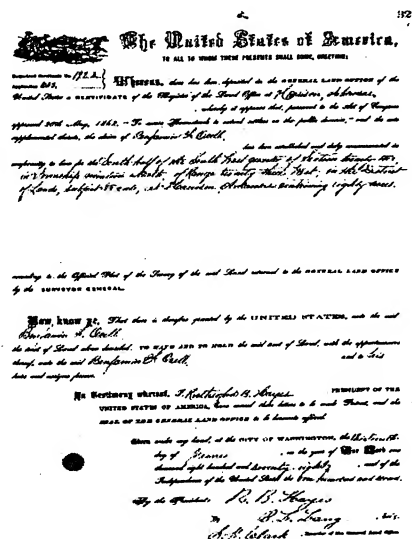 92
The United States of America,
TO ALL TO WHOM THESE PRESENTS SHALL COME, GREETING:
Homestead Certificate No. 1922
Application 203
Whereas, there has been deposited in the GENERAL LAND OFFICE of the
United States a CERTIFICATE of the Register of the Land Office at Harrison, Arkansas
, whereby it appears that, pursuant to the Act of Congress
approved 20th May, 1862, "To secure Homesteads to actual settlers on the public domain," and the acts
supplemental thereto, the claim of Benjamin F.
has been established and duly consummated in
conformity to law for the South half of the South East quarter of Section twenty
in Township nineteen North of Range twenty three West in the District
of Lands, subject to sale, at Harrison Arkansas containing eighty acres.
according to the Official Plat of the Survey of the said Land returned to the GENERAL LAND OFFICE
by the SURVEYOR GENERAL.
Now, know ye, That there is therefore granted by the UNITED STATES, unto the said
Benjamin F.
the tract of Land above described, TO HAVE AND TO HOLD the said tract of Land, with the appurtenances
thereof, unto the said Benjamin F. and to his
heirs and assigns forever.
In Testimony whereof, I, Rutherford B. Hayes PRESIDENT OF THE
UNITED STATES OF AMERICA, have caused these letters to be made Patent, and the
SEAL OF THE GENERAL LAND OFFICE to be hereunto affixed.
Given under my hand, at the CITY OF WASHINGTON, the thirteenth
day of , in the year of Our Lord one
thousand eight hundred and seventy eight, and of the
Independence of the United States the one hundred and second.
By the President: R. B. Hayes
By , Sec'y.
S. W. Clark, Recorder of the General Land Office